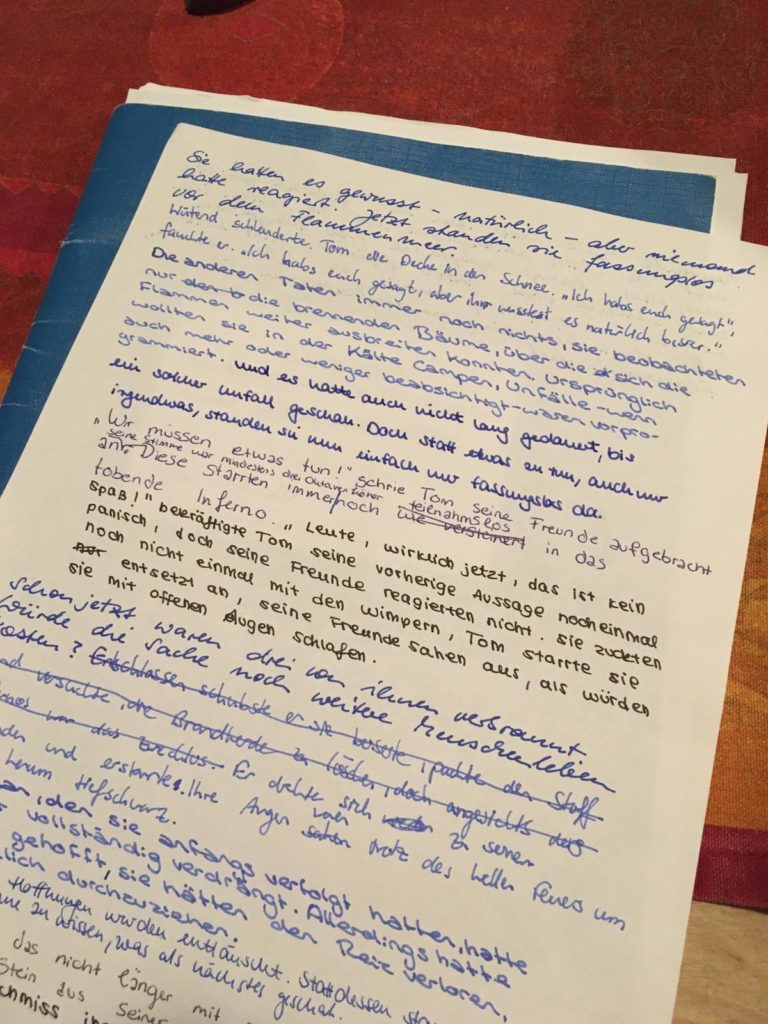 Sie hatten es gewusst – natürlich – aber niemand
hatte reagiert. Jetzt standen sie fassungslos
vor dem Flammenmeer.
Wütend schleuderte Tom die Decke in den Schnee. „Ich habs euch gesagt",
fauchte er. „Ich habs euch gesagt, aber ihr wusstest es natürlich besser."
Die anderen Taten immer noch nichts, sie beobachteten
nur die brennenden Bäume, über die sich die
Flammen weiter ausbreiten konnten. Ursprünglich
wollten sie in der Kälte Campen, Unfälle – wenn
auch mehr oder weniger beabsichtigt – waren vorpro-
grammiert. und es hatte auch nicht lang gedauert, bis
ein solcher Unfall geschah. Doch statt etwas zu tun, auch nur
irgendwas, standen sie nun einfach nur fassungslos da.
„Wir müssen etwas tun!" schrie Tom seine Freunde aufgebracht
seine Stimme war mindestens drei Oktaven höher
an. Diese starrten immernoch wie versteinert teilnahmslos in das
tobende Inferno. „Leute, wirklich jetzt, das ist kein
Spaß!" bekräftigte Tom seine vorherige Aussage nocheinmal
panisch, doch seine Freunde reagierten nicht. Sie zuckten
noch nicht einmal mit den Wimpern, Tom starrte sie
entsetzt an, seine Freunde sahen aus, als würden
sie mit offenen Augen schlafen.
Schon jetzt waren drei von ihnen verbrannt
Würde die Sache noch weitere Menschenleben
kosten? Entschlossen schubste er sie beiseite, packte den Stoff
und versuchte, die Brandherde zu löschen, doch angesichts des
war das zwecklos. Er drehte sich zu seinen
und erstarrte. Ihre Augen waren trotz des hellen Feuers um
herum tiefschwarz.
den sie anfangs verfolgt hatten, hatte
vollständig verdrängt. Allerdings hatte
gehofft, sie hätten den Reiz verloren,
durchzuziehen.
Hoffnungen wurden enttäuscht. Stattdessen
zu wissen, was als nächstes geschah.
das nicht länger mit
Stein aus seiner